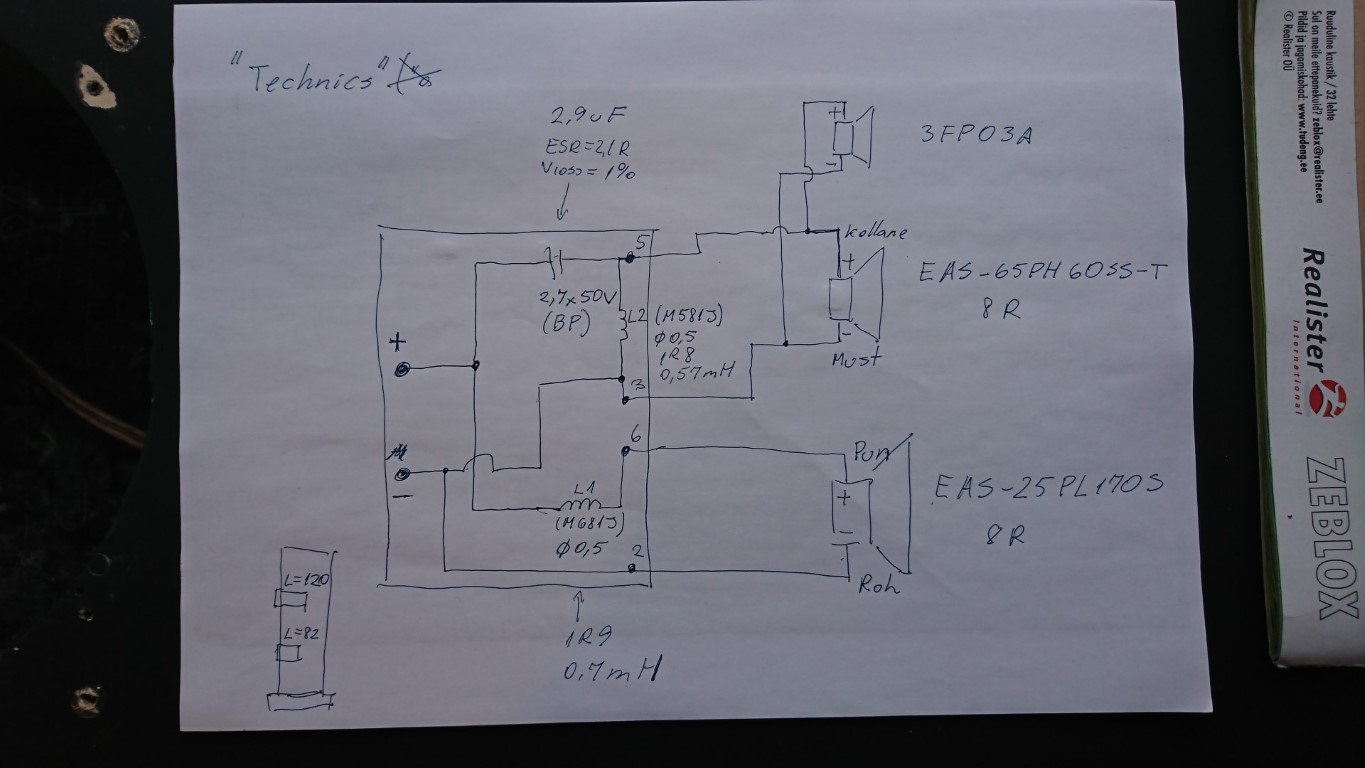 "Technics"
2,9uF
ESR=2,1R
Vloss= 1%
3FP03A
5
kollane
+
EAS-65PH60SS-T
8R
-
Must
2,7x50V
(BP)
L2
(M581J)
ø0,5
1R8
0,57mH
+
3
6
Pun
+
-
EAS-25PL170S
8R
Roh
-
L1
(M681J)
ø0,5
2
L=120
L=82
1R9
0,7mH
+
-
Ruuduline kaustik / 32 lehte
Sul on meile ettepanekuid? zeblox@realister.ee
Pildid ja jagamiskohad: www.tudeng.ee
© Realister OÜ
Realister
International
ZEBLOX